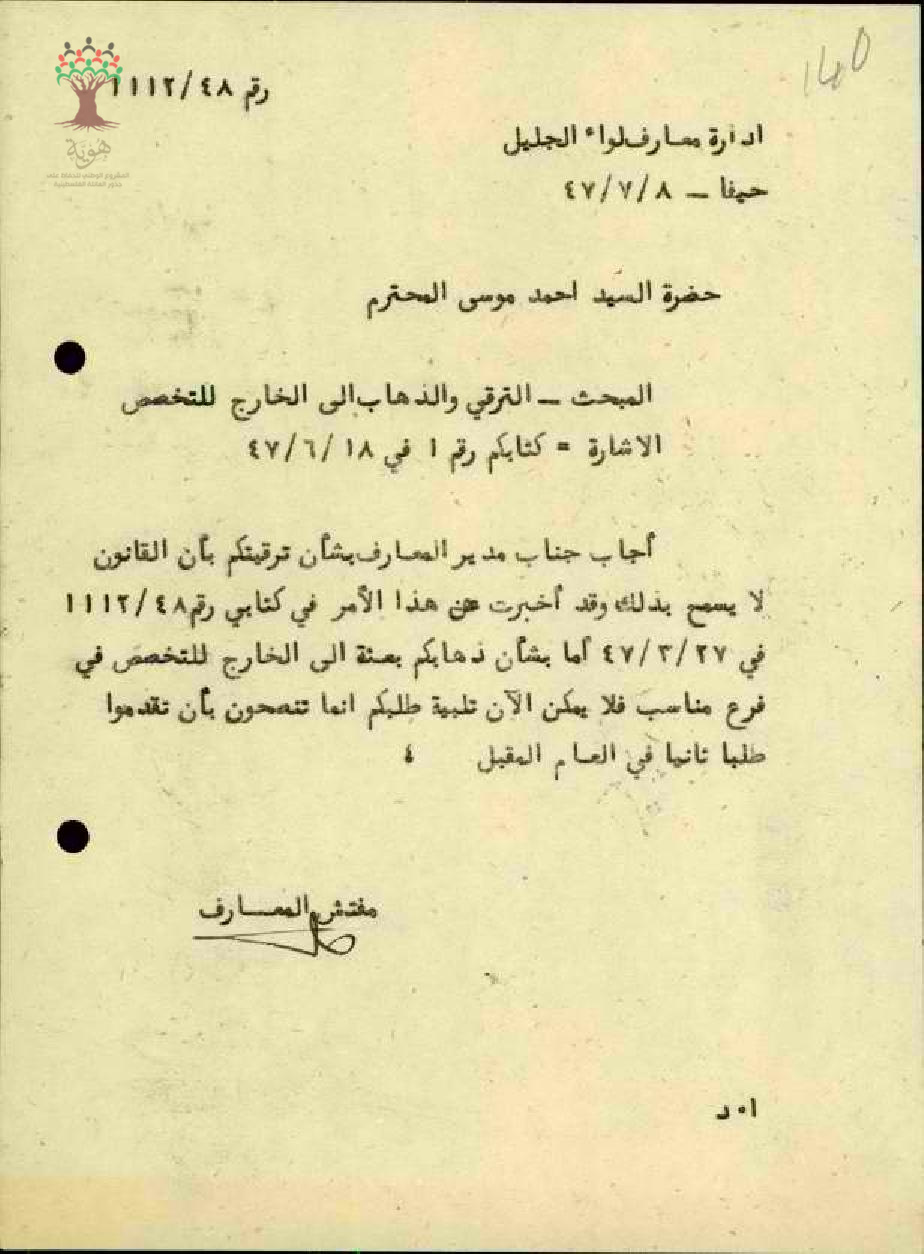 140
رقم ١١١٢/٤٨
هوية
المشروع الوطني للحفاظ على
جذور العائلة الفلسطينية
ادارة معارف لواء الجليل
حيفا ــ ٤٧/٧/٨
حضرة السيد احمد موسى المحترم
المبحث ــ الترقي والذهاب الى الخارج للتخصص
الاشارة = كتابكم رقم ١ في ٤٧/٦/١٨
أجاب جناب مدير المعارف بشأن ترقيتكم بأن القانون
لا يسمح بذلك وقد أخبرت عن هذا الأمر في كتابي رقم ١١١٢/٤٨
في ٤٧/٣/٢٧ أما بشأن ذهابكم بعثة الى الخارج للتخصص في
فرع مناسب فلا يمكن الآن تلبية طلبكم انما تنصحون بأن تقدموا
طلبا ثانيا في العام المقبل ٤
مفتش المعارف
ا٠د